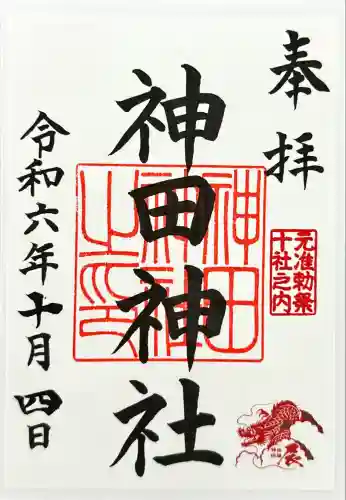 奉拝
元准勅祭
十社之内
神田神社
神田神社之印
辰
令和六年十月四日